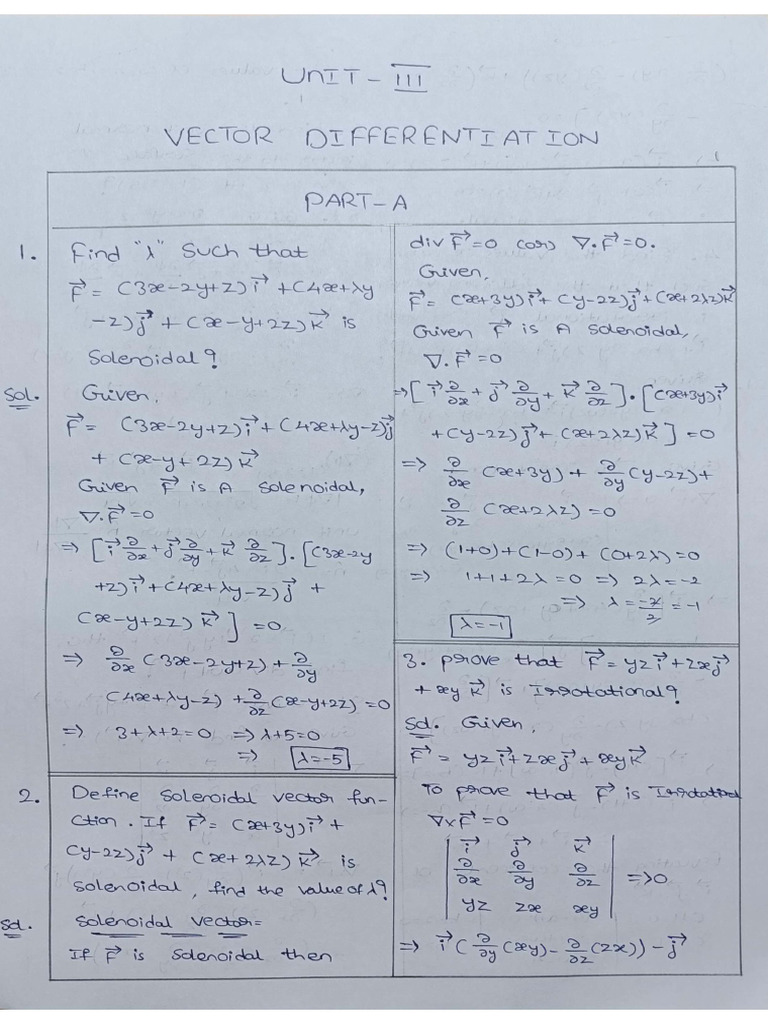 UNIT - III
VECTOR DIFFERENTIATION
PART-A
1. Find "λ" such that
F⃗ = (3x-2y+z)i⃗ +(4x+λy
-z)j⃗ + (x-y+2z)k⃗ is
solenoidal?
Sol. Given,
F⃗ = (3x-2y+z)i⃗ + (4x+λy-z)j⃗
+ (x-y+2z)k⃗
Given F⃗ is A solenoidal,
∇.F⃗ =0
=> [i⃗ ∂/∂x + j⃗ ∂/∂y + k⃗ ∂/∂z].[(3x-2y
+z)i⃗ +(4x+λy-z)j⃗ +
(x-y+2z)k⃗] =0
=> ∂/∂x (3x-2y+z) + ∂/∂y
(4x+λy-z) + ∂/∂z (x-y+2z) =0
=> 3+λ+2=0 => λ+5=0
=> λ=-5
2. Define solenoidal vector fun-
ction. If F⃗ = (x+3y)i⃗ +
(y-2z)j⃗ + (x+2λz)k⃗ is
solenoidal, find the value of λ?
Sol. Solenoidal vector=
If F⃗ is solenoidal then
div F⃗ =0 (or) ∇.F⃗ =0.
Given,
F⃗ = (x+3y)i⃗ + (y-2z)j⃗ +(x+2λz)k⃗
Given F⃗ is A solenoidal,
∇.F⃗ =0
=> [i⃗ ∂/∂x + j⃗ ∂/∂y + k⃗ ∂/∂z].[(x+3y)i⃗
+(y-2z)j⃗ + (x+2λz)k⃗] =0
=> ∂/∂x (x+3y) + ∂/∂y (y-2z)+
∂/∂z (x+2λz) =0
=> (1+0)+(1-0)+(0+2λ)=0
=> 1+1+2λ=0 => 2λ=-2
=> λ = -2/2 = -1
λ=-1
3. prove that F⃗ = yzi⃗ +zxj⃗
+ xy k⃗ is Irrotational?
Sol. Given,
F⃗ = yzi⃗ +zxj⃗ +xyk⃗
To prove that F⃗ is Irrotational
∇xF⃗ =0
| i⃗ j⃗ k⃗ |
| ∂/∂x ∂/∂y ∂/∂z | =>0
| yz zx xy |
=> i⃗ (∂/∂y (xy) - ∂/∂z (zx)) - j⃗